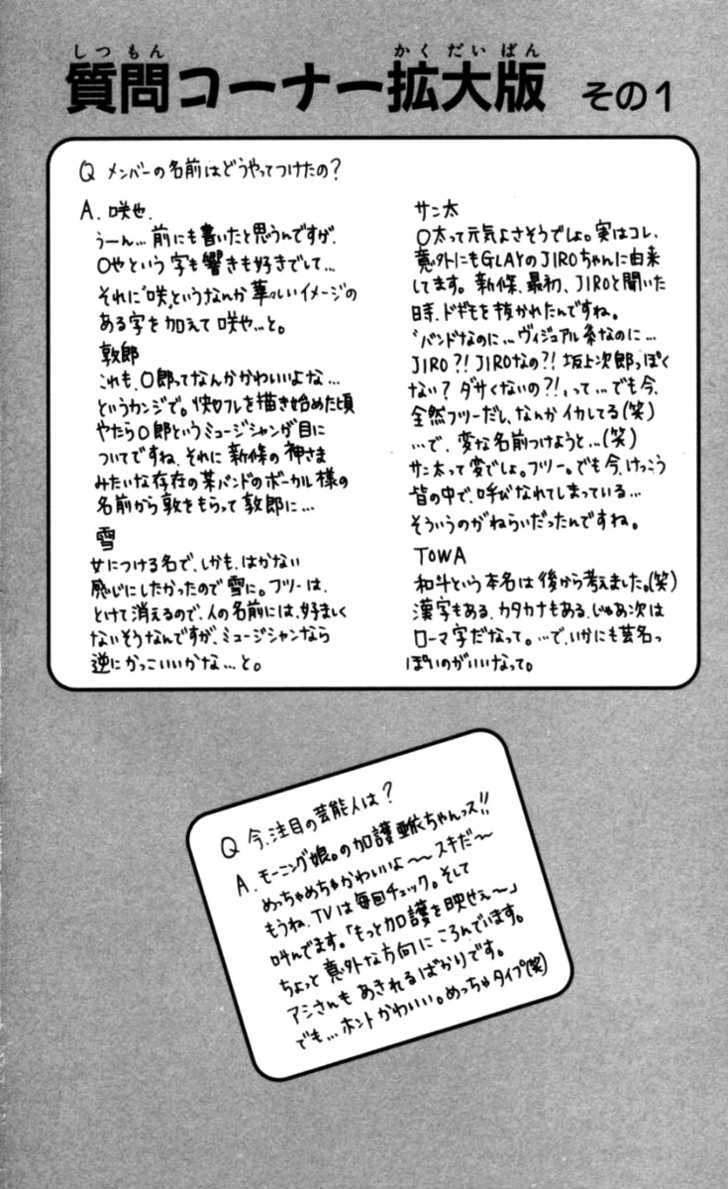 しつもん かくだいばん
質問コーナー拡大版 その1
Q メンバーの名前はどうやってつけたの?
A. 咲也.
うーん…前にも書いたと思うんですが、
〇やという字も響きも好きでして…
それに"咲"というなんか華々しいイメージの
ある字を加えて咲や…と。
敦郎
これも、〇郎ってなんかかわいいよな…
というカンジで。快フレを描き始めた頃
やたら〇郎というミュージシャンが目に
ついてですね、それに新條の神さま
みたいな存在の某バンドのボーカル様の
名前から敦をもらって敦郎に…
雪
女につける名で、しかも、はかない
感じにしたかったので雪に。フツーは、
とけて消えるので、人の名前には、好ましく
ないそうなんですが、ミュージシャンなら
逆にかっこいいかな…と。
サン太
〇太って元気よさそうでしょ。実はコレ、
意外にもGLAYのJIROちゃんに由来
してます。新條、最初、JIROと聞いた
時、ドギモを抜かれたんですね。
"バンドなのに…ヴィジュアル系なのに…
JIRO?!JIROなの?!坂上次郎っぽく
ない?ダサくないの?!"って…でも今、
全然フツーだし、なんかイカしてる(笑)
…で、変な名前つけようと…(笑)
サン太って変でしょ。フツー。でも今、けっこう
皆の中で、呼びなれてしまっている…
そういうのがねらいだったんですね。
TOWA
和斗という本名は後から考えました。(笑)
漢字もある、カタカナもある、じゃあ次は
ローマ字だなって。…で、いかにも芸名っ
ぽいのがいいなって。
Q 今、注目の芸能人は?
A. モーニング娘。の加護亜依ちゃんっス!!
めっちゃめちゃかわいいよ〜〜スキだ〜
もうね、TVは毎回チェック。そして
叫んでます。「もっと加護を映せぇ〜」
ちょっと意外な方向にころんでいます。
アシさんもあきれるばかりです。
でも…ホントかわいい。めっちゃタイプ(笑)